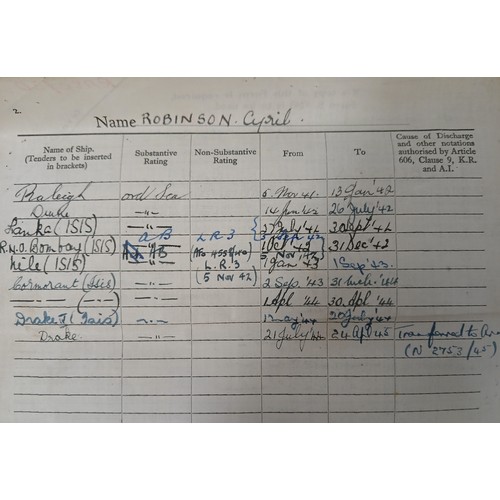 2.
Name ROBINSON. Cyril.
Name of Ship. (Tenders to be inserted in brackets) Substantive Rating Non-Substantive Rating From To Cause of Discharge and other notations authorised by Article 606, Clause 9, K.R. and A.I.
Raleigh ord Sea 5 Nov '41. 13 Jan '42
Drake —"— 14 Jan '42 26 July '42
Lanka (ISIS) —"— 27 July 30 Sept
A B L R 3
R.N.O. Bombay (ISIS) AB 1 Oct 42 31 Dec '42
5 Nov 42
Nile (ISIS) —"— L.R.3 1 Jan 43 1 Sep '43.
Cormorant (Isis) —"— (5 Nov 42) 2 Sep. '43 31 '44
— " — (—"—) —"— 1 Apl '44 30 Apl '44
Drake (Isis) —"— 1 May '44 20 July '44
Drake. —"— 21 July '44 24 Apl 45 Transferred to
(N 2753/45)